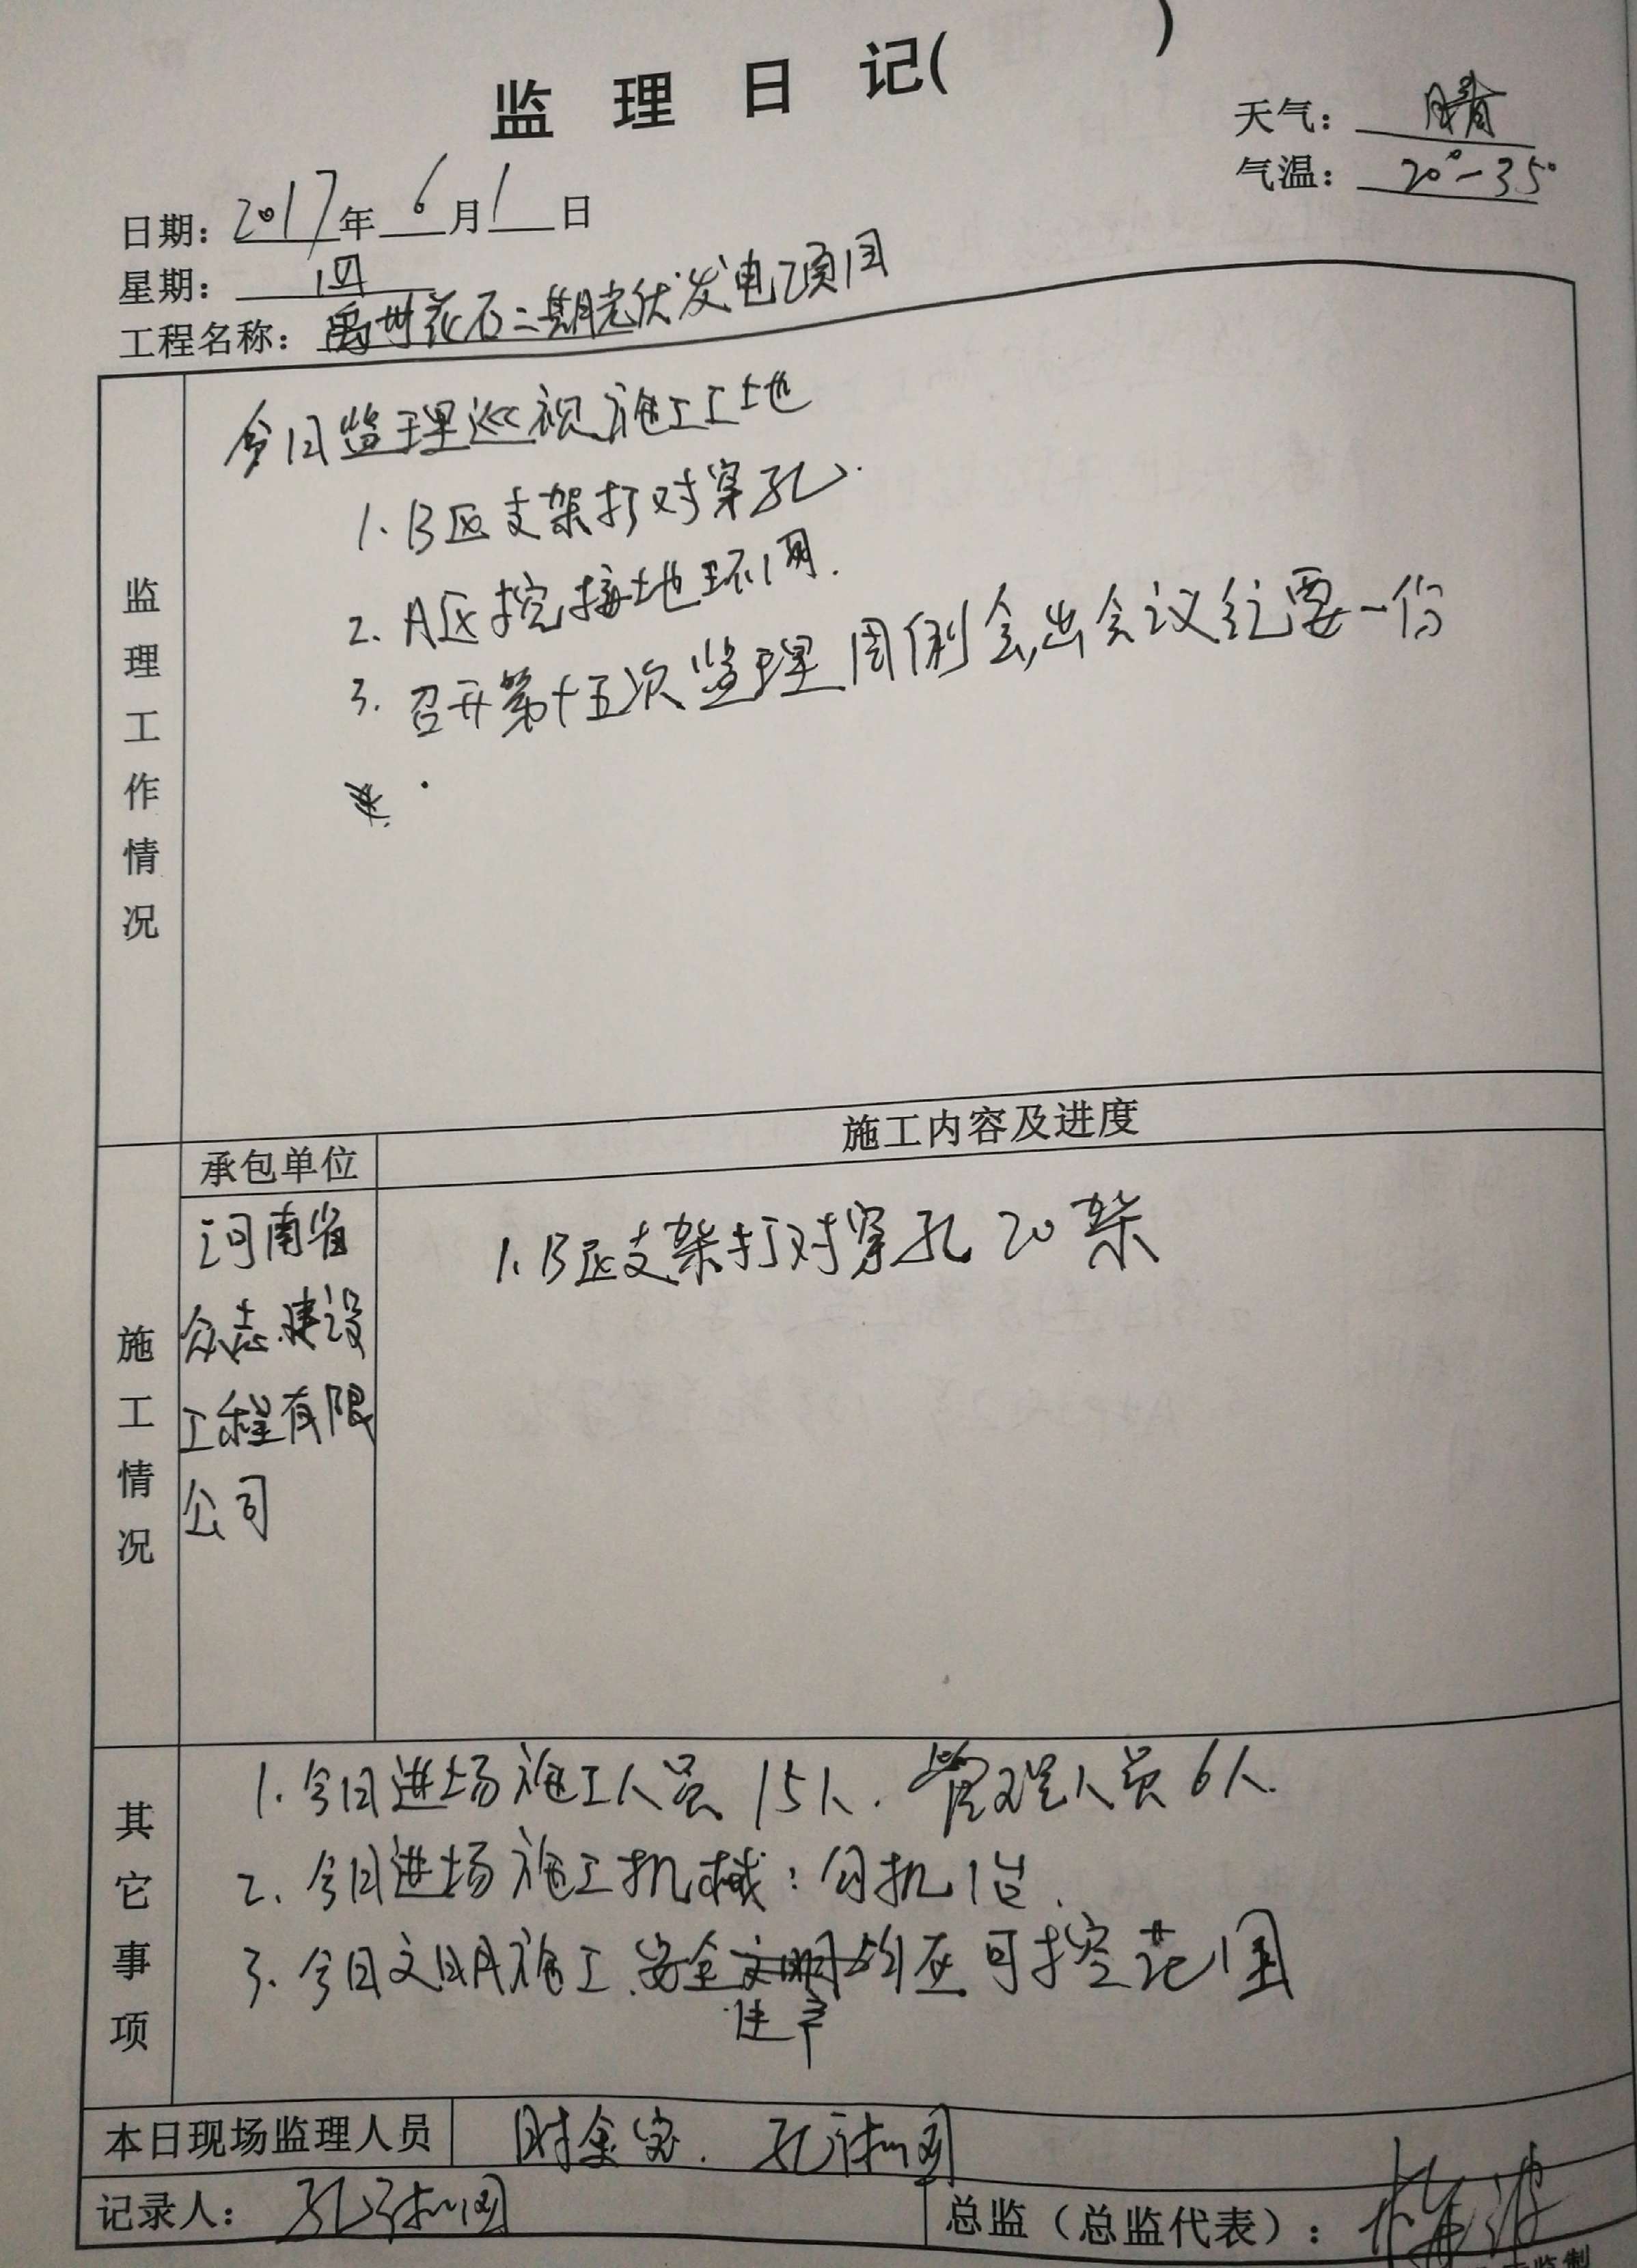 监理日记( )
天气：晴
气温：20°-35°
日期：2017年6月1日
星期：四
工程名称：禹州花石二期光伏发电项目
监理工作情况
今日监理巡视施工工地
1.B区支架打对穿孔.
2.A区挖接地环网.
3.召开第十五次监理周例会,出会议纪要一份
施工内容及进度
承包单位
施工情况
河南省
众志建设
工程有限
公司
1.B区支架打对穿孔20架
其它事项
1.今日进场施工人员15人.管理人员6人.
2.今日进场施工机械：勾机1台.
3.今日文明施工.安全文明均在可控范围
本日现场监理人员
记录人：
总监（总监代表）：
监制